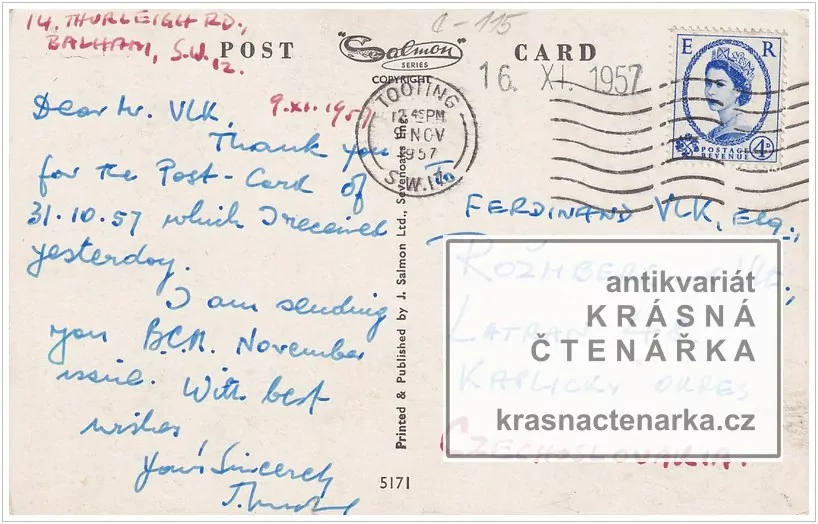 14. THURLEIGH RD.,
BALHAM, S.W.12.
C-115
POST
"Salmon"
SERIES
COPYRIGHT
CARD
16. XI. 1957
E R
POSTAGE
REVENUE
4D
TOOTING
12 45 PM
9 NOV
1957
S.W.17.
9.XI.1957
Dear Mr. VLK,
Thank you
for the Post-Card of
31.10.57 which I received
yesterday.
I am sending
you B.C.M. November
issue. With best
wishes
Your's Sincerely
To
FERDINAND VLK, Esq.,
LATRAN
KAPLICKY OKRES
CZECHOSLOVAKIA.
Printed & Published by J. Salmon Ltd., Sevenoaks Eng.
5171
antikvariát
KRÁSNÁ
ČTENÁŘKA
krasnactenarka.cz